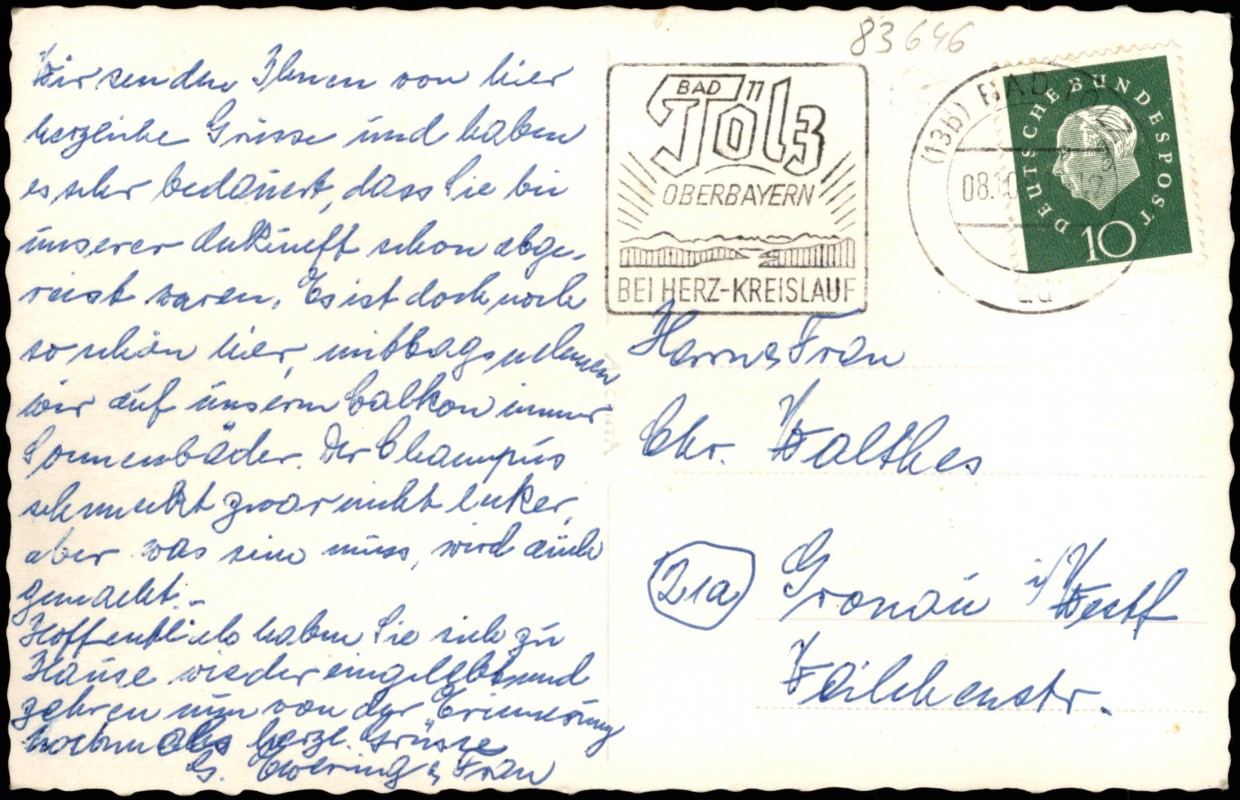 Wir senden Ihnen von hier
herzliche Grüsse und haben
es sehr bedauert, dass Sie bei
unserer Ankunft schon abge-
reist waren. Es ist doch noch
so schön hier, mittags nehmen
wir auf unserm Balkon immer
Sonnenbäder. Der Champus
schmeckt zwar nicht lecker,
aber was sein muss, wird auch
gemacht.-
Hoffentlich haben Sie sich zu
Hause wieder eingelebt und
zehren nun von der Erinnerung
nochmals herzl. Grüsse
G. & Frau
83646
BAD
Tölz
OBERBAYERN
BEI HERZ-KREISLAUF
(13b) BAD
08.10
DEUTSCHE BUNDESPOST
10
Herrn & Frau
Chr. Walthes
21a
Gronau i/Westf
Veilchenstr.